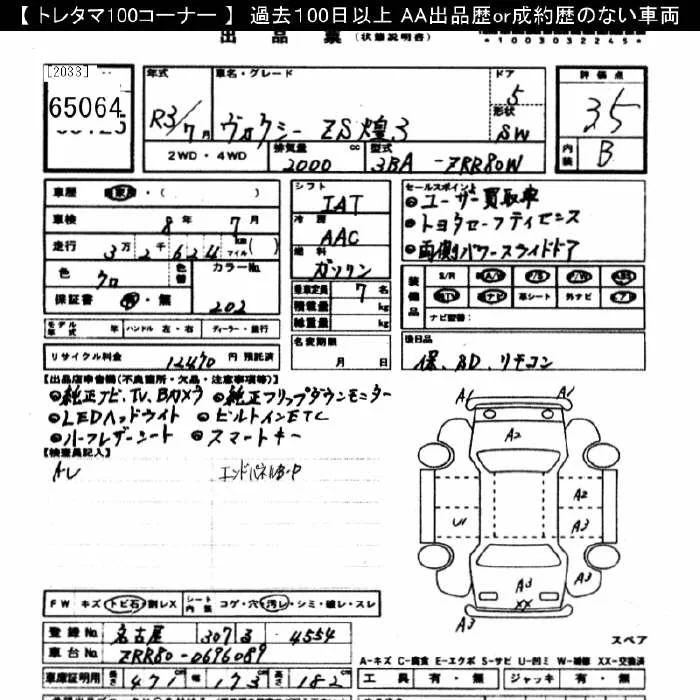 【 トレタマ100コーナー 】 過去100日以上 AA出品歴or成約歴のない車両
出品票 (状態説明書)
*1003032245*
[2033]
65064
年式 車名・グレード ドア 評価点
R3/7月 ヴォクシー ZS煌3 5 3.5
形状 SW
2WD・4WD 排気量 2000 cc 型式 3BA-ZRR80W 内装 B
車歴 自家用・( )
車検 8年 7月
走行 3万2千624 km マイル ( )
色 クロ 色替 カラーNo. 202
保証書 有・無
シフト IAT
冷房 AAC
燃料 ガソリン
乗車定員 7名
積載量 kg
総重量 kg
セールスポイント
●ユーザー買取車
●トヨタセーフティセンス
●両側パワースライドドア
装備品 S/R A/W P/S P/W ABS
TV ナビ 革シート 外ナビ エアB
ナビ種番:
モデル年式 年 ハンドル 左・右 ディーラー・並行
名変期限 月 日
後日品
保、BD、リモコン
リサイクル料金 12470 円 預託済
【出品店申告欄(不良箇所・欠品・注意事項等)】
●純正ナビ、TV、Bカメラ ●純正フリップダウンモニター
●LEDヘッドライト ●ビルトインETC
●ハーフレザーシート ●スマートキー
【検査員記入】
エンドパネルB・P
A1
A1
A2
A2
U1
A3
A3
A3
XX
A3
FW キズ・トビ石・割レX シート内装 コゲ・穴・汚レ・シミ・破レ・スレ
登録No. 名古屋 307 る 4554
車台No. ZRR80-0696089
スペア
車庫証明用 長 471 幅 173 高 182
A-キズ C-腐食 E-エクボ S-サビ U-凹ミ W-補修 XX-交換済
工具 有・無 ジャッキ 有・無